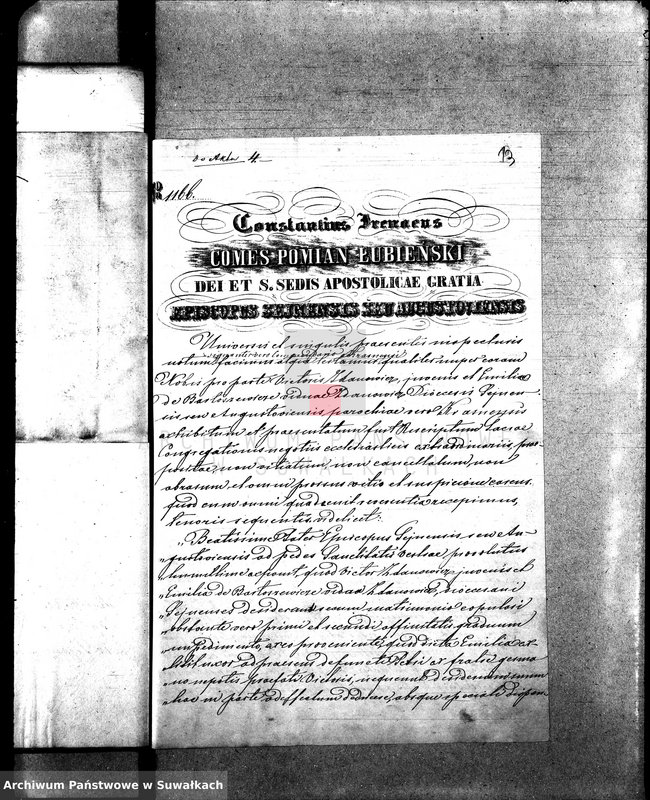 do Aktu 4.
13
No 1166.
Constantius Ireneus
COMES POMIAN ŁUBIEŃSKI
DEI ET S. SEDIS APOSTOLICAE GRATIA
EPISCOPUS SEJNENSIS SEU AUGUSTOVIENSIS
Universis et singulis praesentes inspecturis
notum facimus atque testamur qualiter nuper coram
Nobis pro parte Victoris Zdanowicz, juvenis et Emiliae
de Bartoszewicze viduae Zdanowicz Diaecesis Sejnen-
sis seu Augustoviensis, parochiae vero
exhibitum et praesentatum fuit Rescriptum Sacrae
Congregationis negotiis ecclesiasticis extraordinariis prae-
positae, non vitiatum, non cancellatum, non
abrasum et omni prorsus vitio et suspicione carens,
quod cum omni qua decuit reverentia accepimus,
tenoris sequentis videlicet:
"Beatissime Pater Episcopus Sejnensis seu Au-
"gustoviensis ad pedes Sanctitatis Vestrae provolutus
"humillime exponit, quod Victor Zdanowicz, juvenis et
"Emilia de Bartoszewicze vidua Zdanowicz, dioecesani
"Sejnenses desiderant secum matrimonio copulari
"obstante vero primi et secundi affinitatis graduum
"impedimento, ex eo proveniente, quod dicta Emilia ex-
"titit uxor ad praesens defuncti Petri ex fratre germa-
"no nepotis praefati Victoris, nequeunt desiderium suum
"hac in parte ad effectum deducere, absque speciali dispen
Archiwum Państwowe w Suwałkach